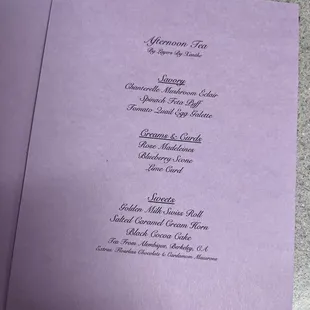 Afternoon Tea
By Layers By Xanthe
Savory
Chanterelle Mushroom Eclair
Spinach Feta Puff
Tomato Quail Egg Galette
Creams & Curds
Rose Madeleines
Blueberry Scone
Lime Curd
Sweets
Golden Milk Swiss Roll
Salted Caramel Cream Horn
Black Cocoa Cake
Tea From Alembique, Berkeley, CA
Extras: Flourless Chocolate & Cardamom Macarons